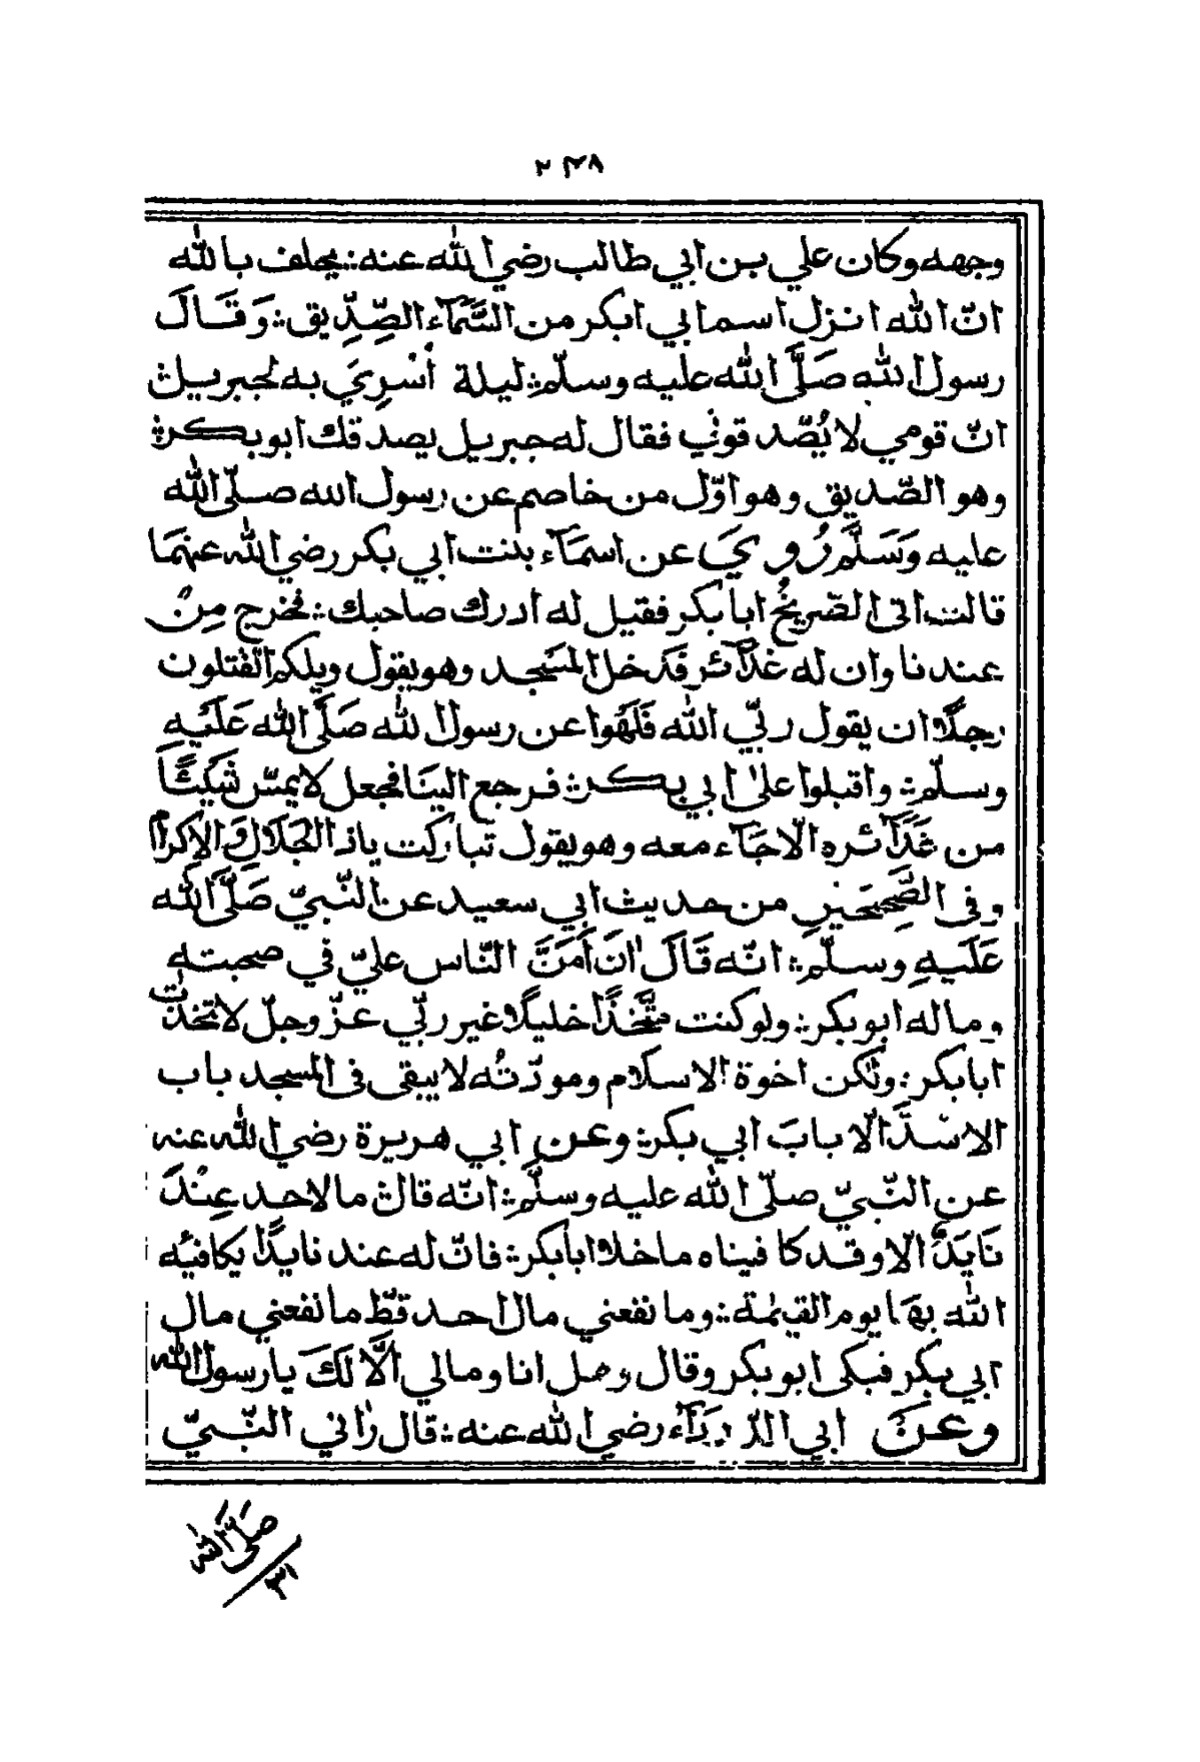 ٢٣٨
وجهه وكان علي بن ابي طالب رضي الله عنه ؞ يحلف بالله
انّ الله انزل اسم ابي ابكر من السَّمَآء الصِّدِّيق ؞ وَقَالَ
رسول الله صَلَّى الله عليه وسلّم ؞ ليلة أسْرِيَ به لجبريل ؞
انّ قومي لا يُصّدقوني فقال له جبريل يصدقك ابو بكر ؞
وهو الصّديق وهو اوّل من خاصم عن رسول الله صلّى الله
عليه وَسَلَّم رُوِيَ عن اسمَآء بنت ابي بكر رضي الله عنهمَا
قالت اتى الصّريخُ ابا بكر فقيل له ادرك صاحبك ؞ فخرج مِنْ
عندنا وان له غدآئر فدخل المَسْجد وهو يقول ويلكم اتقتلون
رجلًا ان يقول ربّي الله فَلَهَوا عن رسول الله صَلَّى الله عَلَيْهِ
وسلّم ؞ واقبلوا على ابي بكر ؞ فرجع الينَا فجعل لا يمسّ شَيْئًا
من غَدَآئره الّا جَآء معه وهو يقول تباركت ياذ الجَلَالِ وَالاِكرام
وفى الصَّحِيحَيْنِ من حديث ابي سعيد عن النّبيّ صَلَّى الله
عَلَيهِ وسلّم ؞ انّه قَالَ انَ أمَنَّ النّاس عليّ في صحبته
وماله ابو بكر ؞ ولو كنت متَّخذًا خليلًا غير ربّي عزّ وجلّ لاتّخذت
ابا بكر ؞ ولكن اخوة الاسلام ومودّتُه لا يبقى فى المسجد باب
الاسْدَّ الّا بابَ ابي بكر ؞ وعن ابي هريرة رضي الله عنه
عن النّبيّ صلّى الله عليه وسلّم ؞ انّه قال ؞ ما لاحد عِنْدَ
نَايَدٌ الا وقد كافيناه ما خلا ابا بكر ؞ فانّ له عند نايدًا يكافئه
الله بهَا يوم القيٰمة ؞ وما نفعني مال احد قطّ ما نفعني مال
ابي بكر فبكى ابو بكر وقال وهل انا ومالي الَّا لَكَ يا رسول الله
وعَنْ ابي الدّردَآء رضي الله عنه ؞ قال رٰاني النّبيّ
صَلَّى الله
٣١